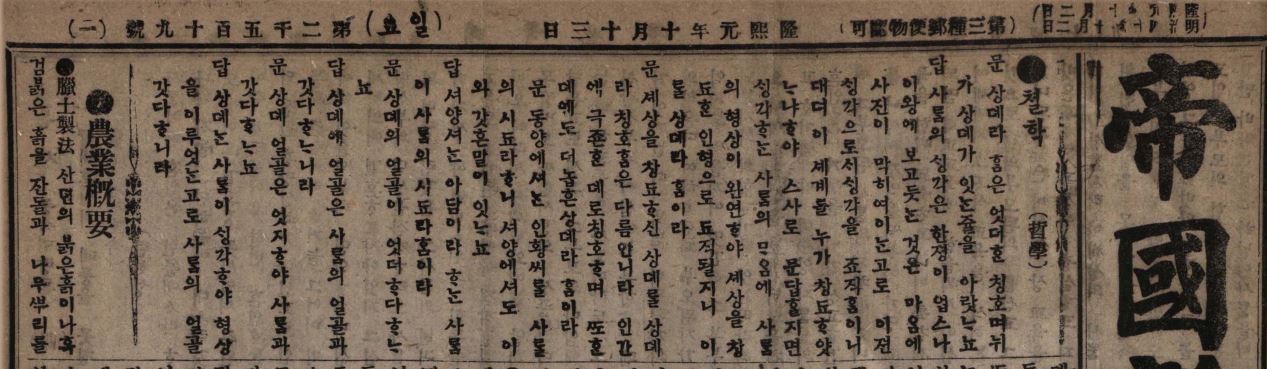 帝國
隆熙元年十月十三日
第三種郵便物認可
(일요)
第二千五百十九號 (一)
철학 (哲學)
문 상뎨라 홈은 엇더ᄒᆞᆫ 칭호며 뉘
가 상뎨가 잇ᄂᆞᆫ줄을 아랏ᄂᆞ뇨
답 사ᄅᆞᆷ의 ᄉᆡᆼ각은 한정이 업스나
이왕에 보고듯ᄂᆞᆫ 것은 마음에
사진이 막히여이ᄂᆞᆫ고로 이젼
ᄉᆡᆼ각으로서ᄉᆡᆼ각을 죠직홈이니
대뎌 이 세계를 누가 창됴ᄒᆞ얏
ᄂᆞ냐ᄒᆞ야 스사로 문답홀지면
ᄉᆡᆼ각ᄒᆞᄂᆞᆫ 사ᄅᆞᆷ의 ᄆᆞᄋᆞᆷ에 사ᄅᆞᆷ
의 형상이 완연ᄒᆞ야 셰상을 창
됴ᄒᆞᆫ 인형으로 됴직될지니 이
ᄅᆞᆯ 상뎨라 홈이라
문 셰상을 창됴ᄒᆞ신 상뎨를 상뎨
라 칭호홈은 다름안니라 인간
에 극존ᄒᆞᆫ 뎨로칭호ᄒᆞ며 ᄯᅩᄒᆞᆫ
뎨에도 더놉흔상뎨라 홈이라
문 동양에셔ᄂᆞᆫ 인황씨를 사ᄅᆞᆷ
의 시됴라ᄒᆞ니 셔양에셔도 이
와 갓ᄒᆞᆫ말이 잇ᄂᆞ뇨
답 셔양셔ᄂᆞᆫ 아담이라 ᄒᆞᄂᆞᆫ 사ᄅᆞᆷ
이 사ᄅᆞᆷ의 시됴라홈이라
문 상뎨의 얼골이 엇더ᄒᆞ다ᄒᆞᄂᆞ
뇨
답 상뎨에 얼골은 사ᄅᆞᆷ의 얼골과
갓다ᄒᆞᄂᆞ니라
문 상뎨 얼골은 엇지ᄒᆞ야 사ᄅᆞᆷ과
갓다ᄒᆞᄂᆞ뇨
답 상뎨ᄂᆞᆫ 사ᄅᆞᆷ이 ᄉᆡᆼ각ᄒᆞ야 형상
을 이루엇ᄂᆞᆫ고로 사ᄅᆞᆷ의 얼골
갓다ᄒᆞ니라
農業槪要
臘土製法 산면의 붉은흙이나혹
검붉은 흙을 잔돌과 나무ᄲᅮ리를